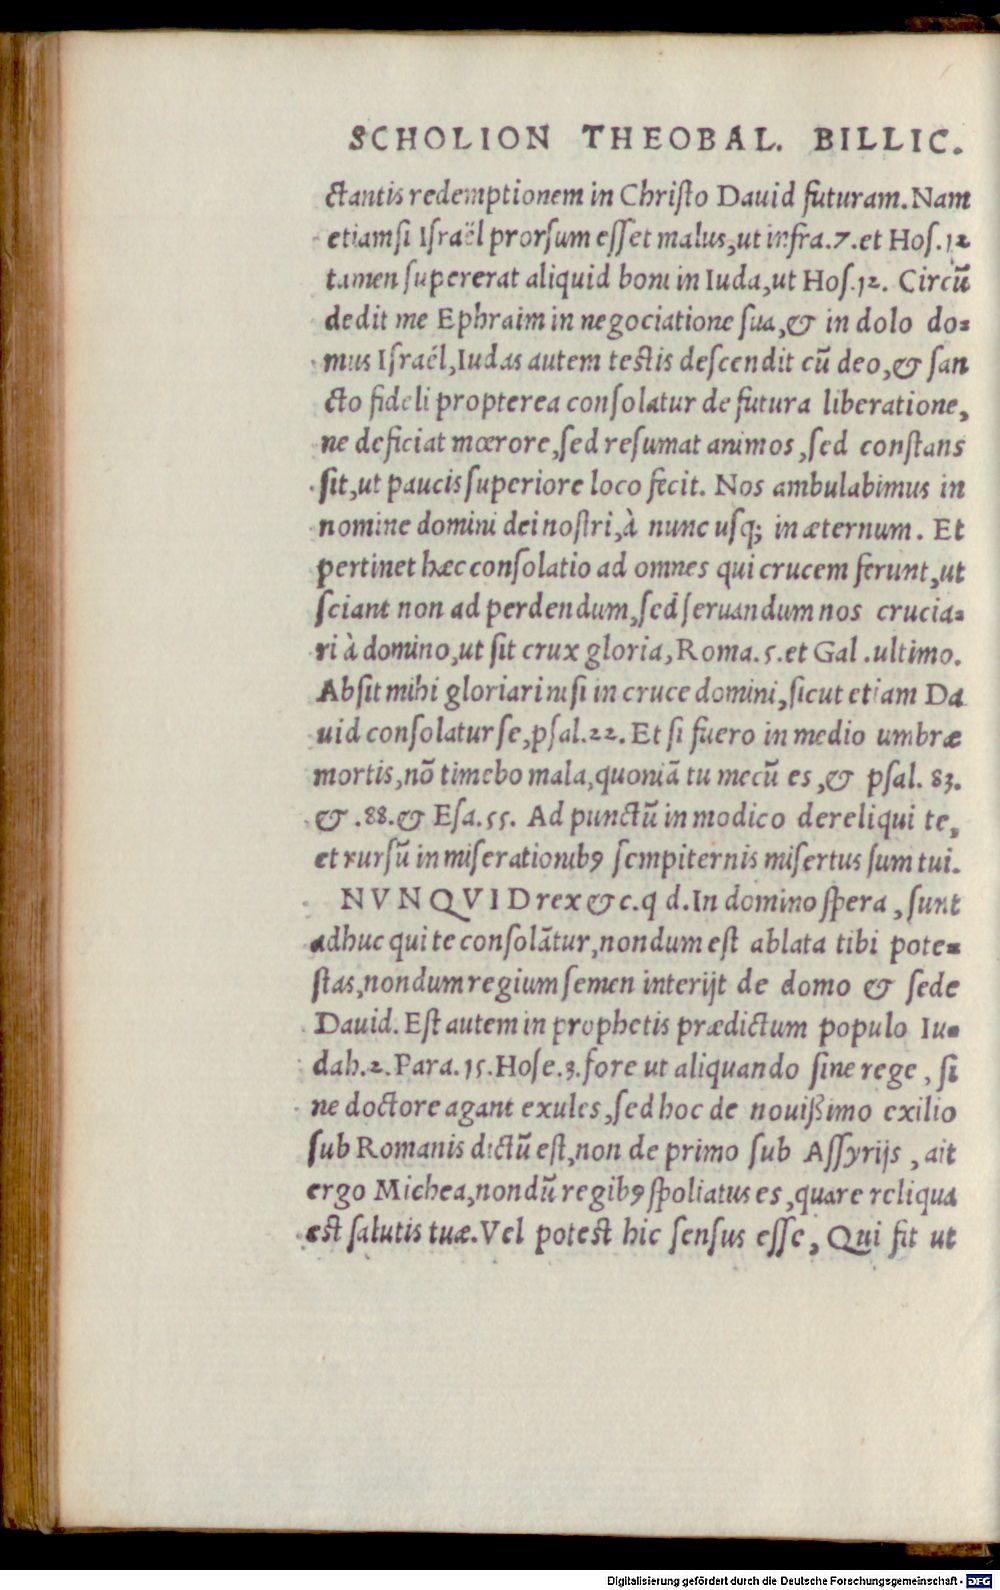 SCHOLION THEOBAL. BILLIC.
ctantis redemptionem in Christo Dauid futuram. Nam
etiamsi Israël prorsum esset malus, ut infra. 7. et Hos. 12
tamen supererat aliquid boni in Iuda, ut Hos. 12. Circũ
dedit me Ephraim in negociatione sua, & in dolo do=
mus Israël, Iudas autem testis descendit cũ deo, & san
cto fideli propterea consolatur de futura liberatione,
ne deficiat mœrore, sed resumat animos, sed constans
sit, ut paucis superiore loco fecit. Nos ambulabimus in
nomine domini dei nostri, à nunc usq; in æternum. Et
pertinet hæc consolatio ad omnes qui crucem ferunt, ut
sciant non ad perdendum, sed seruandum nos crucia=
ri à domino, ut sit crux gloria, Roma. 5. et Gal. ultimo.
Absit mihi gloriari nisi in cruce domini, sicut etiam Da
uid consolatur se, psal. 22. Et si fuero in medio umbræ
mortis, nõ timebo mala, quoniã tu mecũ es, & psal. 83.
& .88. & Esa. 55. Ad punctũ in modico dereliqui te,
et rursũ in miserationibꝰ sempiternis misertus sum tui.
NVNQVID rex & c. q d. In domino spera, sunt
adhuc qui te consolãtur, nondum est ablata tibi pote=
stas, nondum regium semen interijt de domo & sede
Dauid. Est autem in prophetis prædictum populo Iu=
dah. 2. Para. 15. Hose. 3. fore ut aliquando sine rege, si
ne doctore agant exules, sed hoc de nouißimo exilio
sub Romanis dictũ est, non de primo sub Assyrijs, ait
ergo Michea, nondũ regibꝰ spoliatus es, quare reliqua
est salutis tuæ. Vel potest hic sensus esse, Qui fit ut
Digitalisierung gefördert durch die Deutsche Forschungsgemeinschaft - DFG